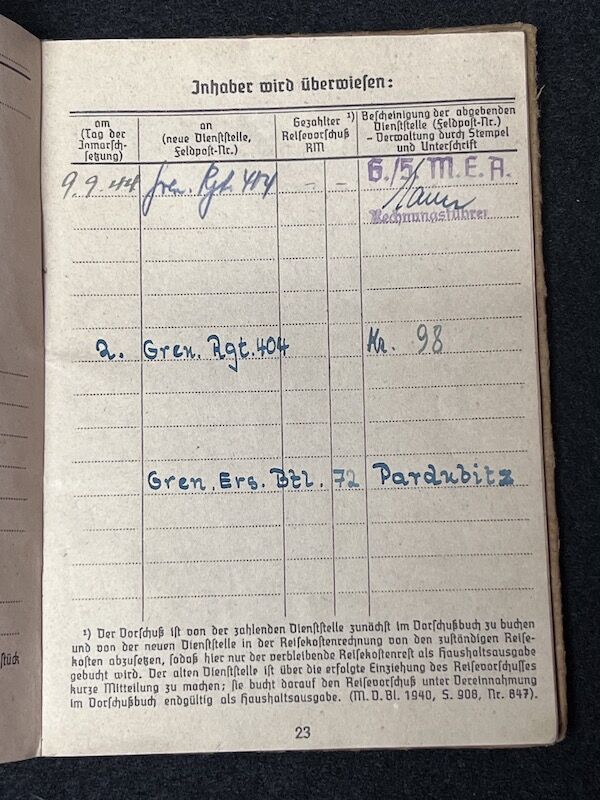 Inhaber wird überwiesen:
am
(Tag der
Inmarsch-
setzung)
an
(neue Dienststelle,
Feldpost-Nr.)
Gezahlter ¹)
Reisevorschuß
RM
Bescheinigung der abgebenden
Dienststelle (Feldpost-Nr.)
– Verwaltung durch Stempel
und Unterschrift
9.9.44 Gren. Rgt. 404 – – 6./5. M.E.A.
Rechnungsführer
2. Gren. Rgt. 404 Kr. 98
Gren. Ers. Btl. 72 Pardubitz
¹) Der Vorschuß ist von der zahlenden Dienststelle zunächst im Vorschußbuch zu buchen
und von der neuen Dienststelle in der Reisekostenrechnung von den zuständigen Reise-
kosten abzusetzen, sodaß hier nur der verbleibende Reisekostenrest als Haushaltsausgabe
gebucht wird. Der alten Dienststelle ist über die erfolgte Einziehung des Reisevorschusses
kurze Mitteilung zu machen; sie bucht darauf den Reisevorschuß unter Vereinnahmung
im Vorschußbuch endgültig als Haushaltsausgabe. (M. V. Bl. 1940, S. 908, Nr. 847).
23
stück